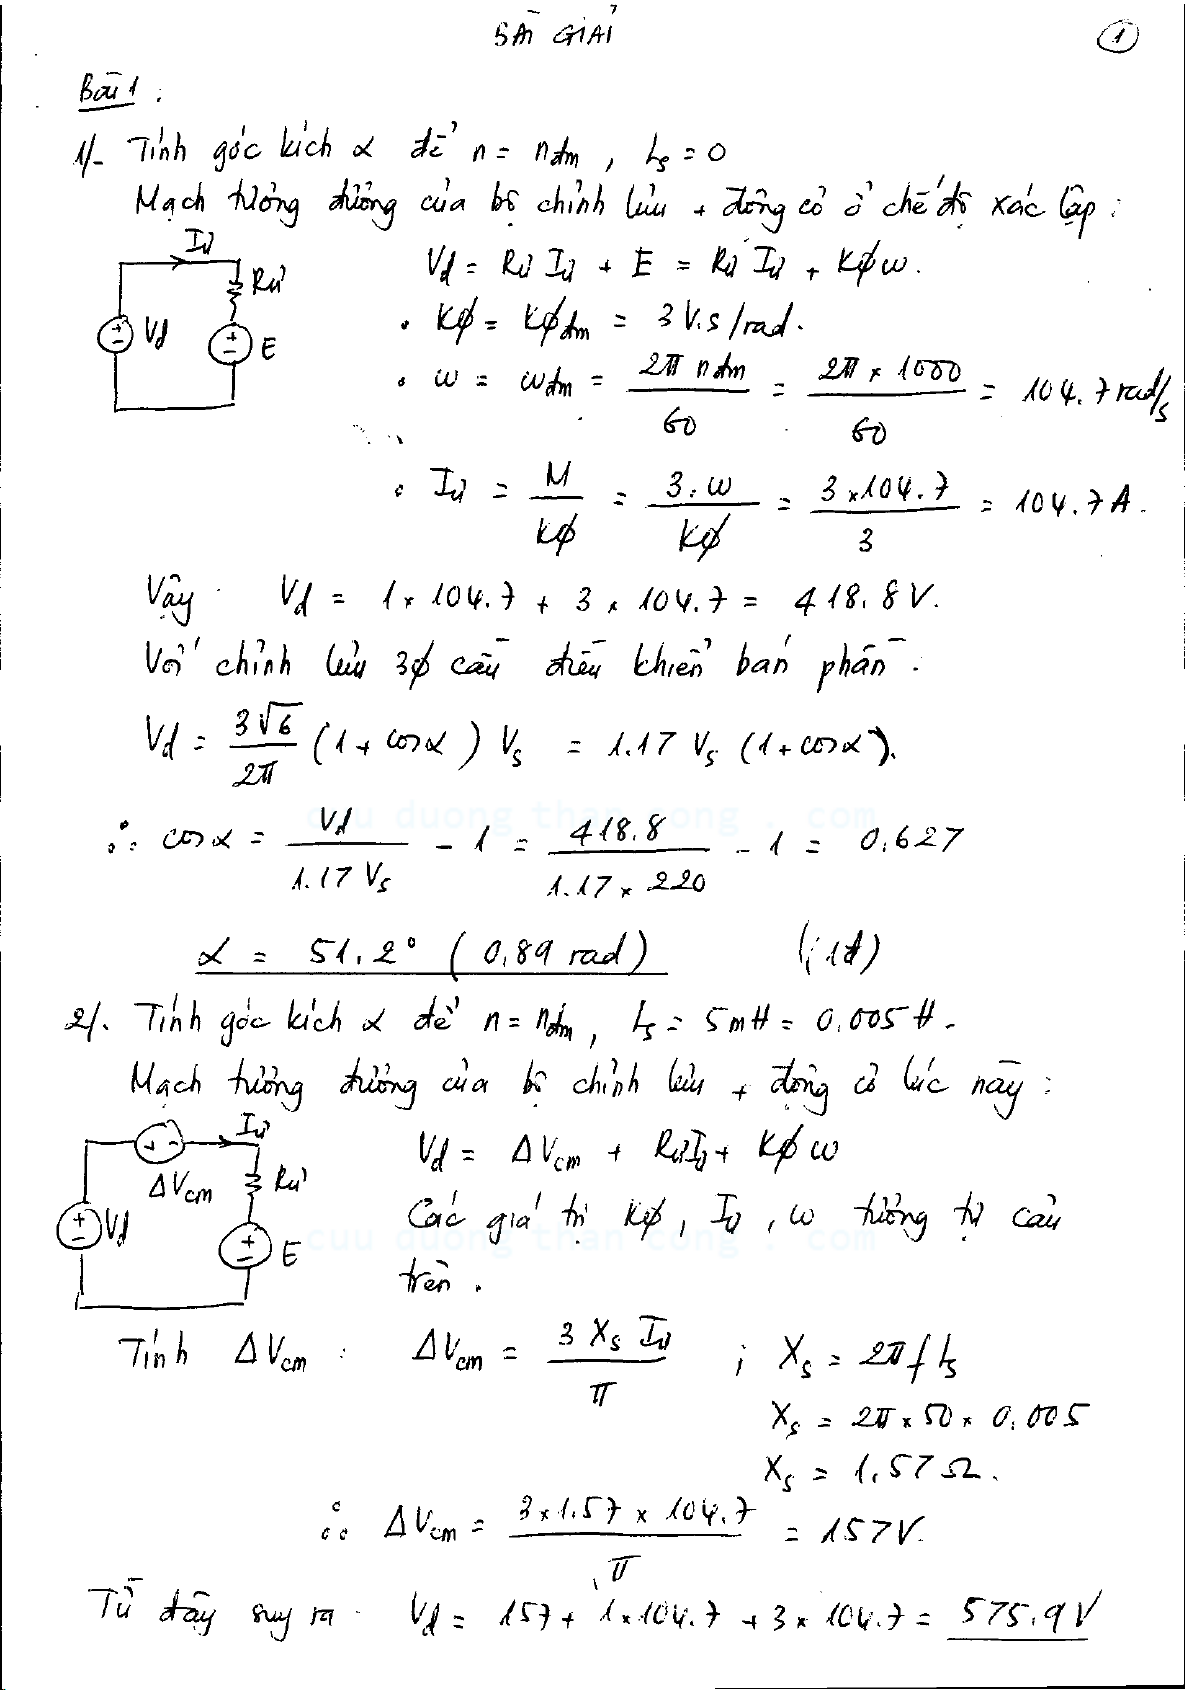 BÀI GIẢI
1
Bài 1 :
1/- Tính góc kích α để n = nđm , Ls = 0
Mạch tương đương của bộ chỉnh lưu + động cơ ở chế độ xác lập :
Iư
Rư
Vd
E
Vd = Rư Iư + E = Rư Iư + Kφω.
• Kφ = Kφđm = 3 V.s/rad.
• ω = ωđm = 2π nđm / 60 = 2π × 1000 / 60 = 104.7 rad/s
• Iư = M / Kφ = 3.ω / Kφ = 3 × 104.7 / 3 = 104.7 A.
Vậy Vd = 1 × 104.7 + 3 × 104.7 = 418.8 V.
Với chỉnh lưu 3φ cầu điều khiển bán phần.
Vd = 3√6 / 2π (1 + cosα) Vs = 1.17 Vs (1 + cosα).
cuu duong than cong . com
∴ cosα = Vd / 1.17 Vs - 1 = 418.8 / 1.17 × 220 - 1 = 0.627
α = 51.2° (0.89 rad) (1đ)
2/. Tính góc kích α để n = nđm, Ls = 5mH = 0.005 H.
Mạch tương đương của bộ chỉnh lưu + động cơ lúc này :
Iư
ΔVcm
Rư
Vd
E
Vd = ΔVcm + RưIư + Kφω
Các giá trị Kφ, Iư, ω tương tự câu
cuu duong than cong . com
trên .
Tính ΔVcm : ΔVcm = 3 Xs Iư / π ; Xs = 2πf Ls
Xs = 2π × 50 × 0.005
Xs = 1.57 Ω.
∴ ΔVcm = 3 × 1.57 × 104.7 / π = 157 V.
Từ đây suy ra Vd = 157 + 1 × 104.7 + 3 × 104.7 = 575.9 V